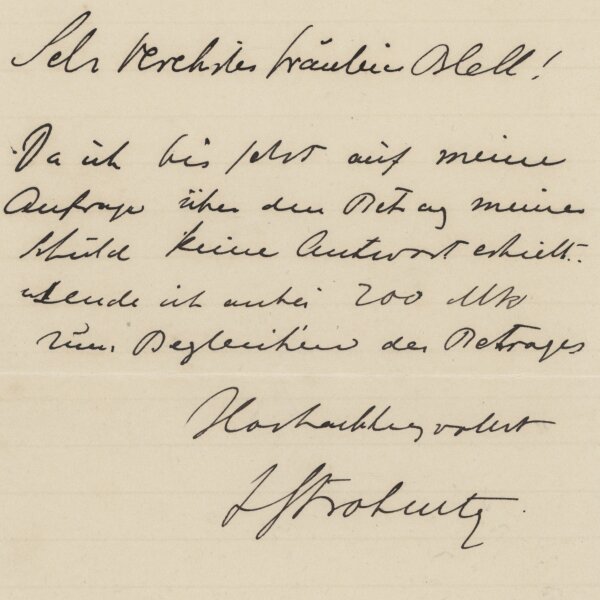 Sehr verehrtes Fräulein Blell!
Da ich bis jetzt auf meine
Anfrage über den Betrag meiner
Schuld keine Antwort erhielt.
sende ich anbei 200 Mk
zum Begleichen des Betrages
Hochachtungsvollst